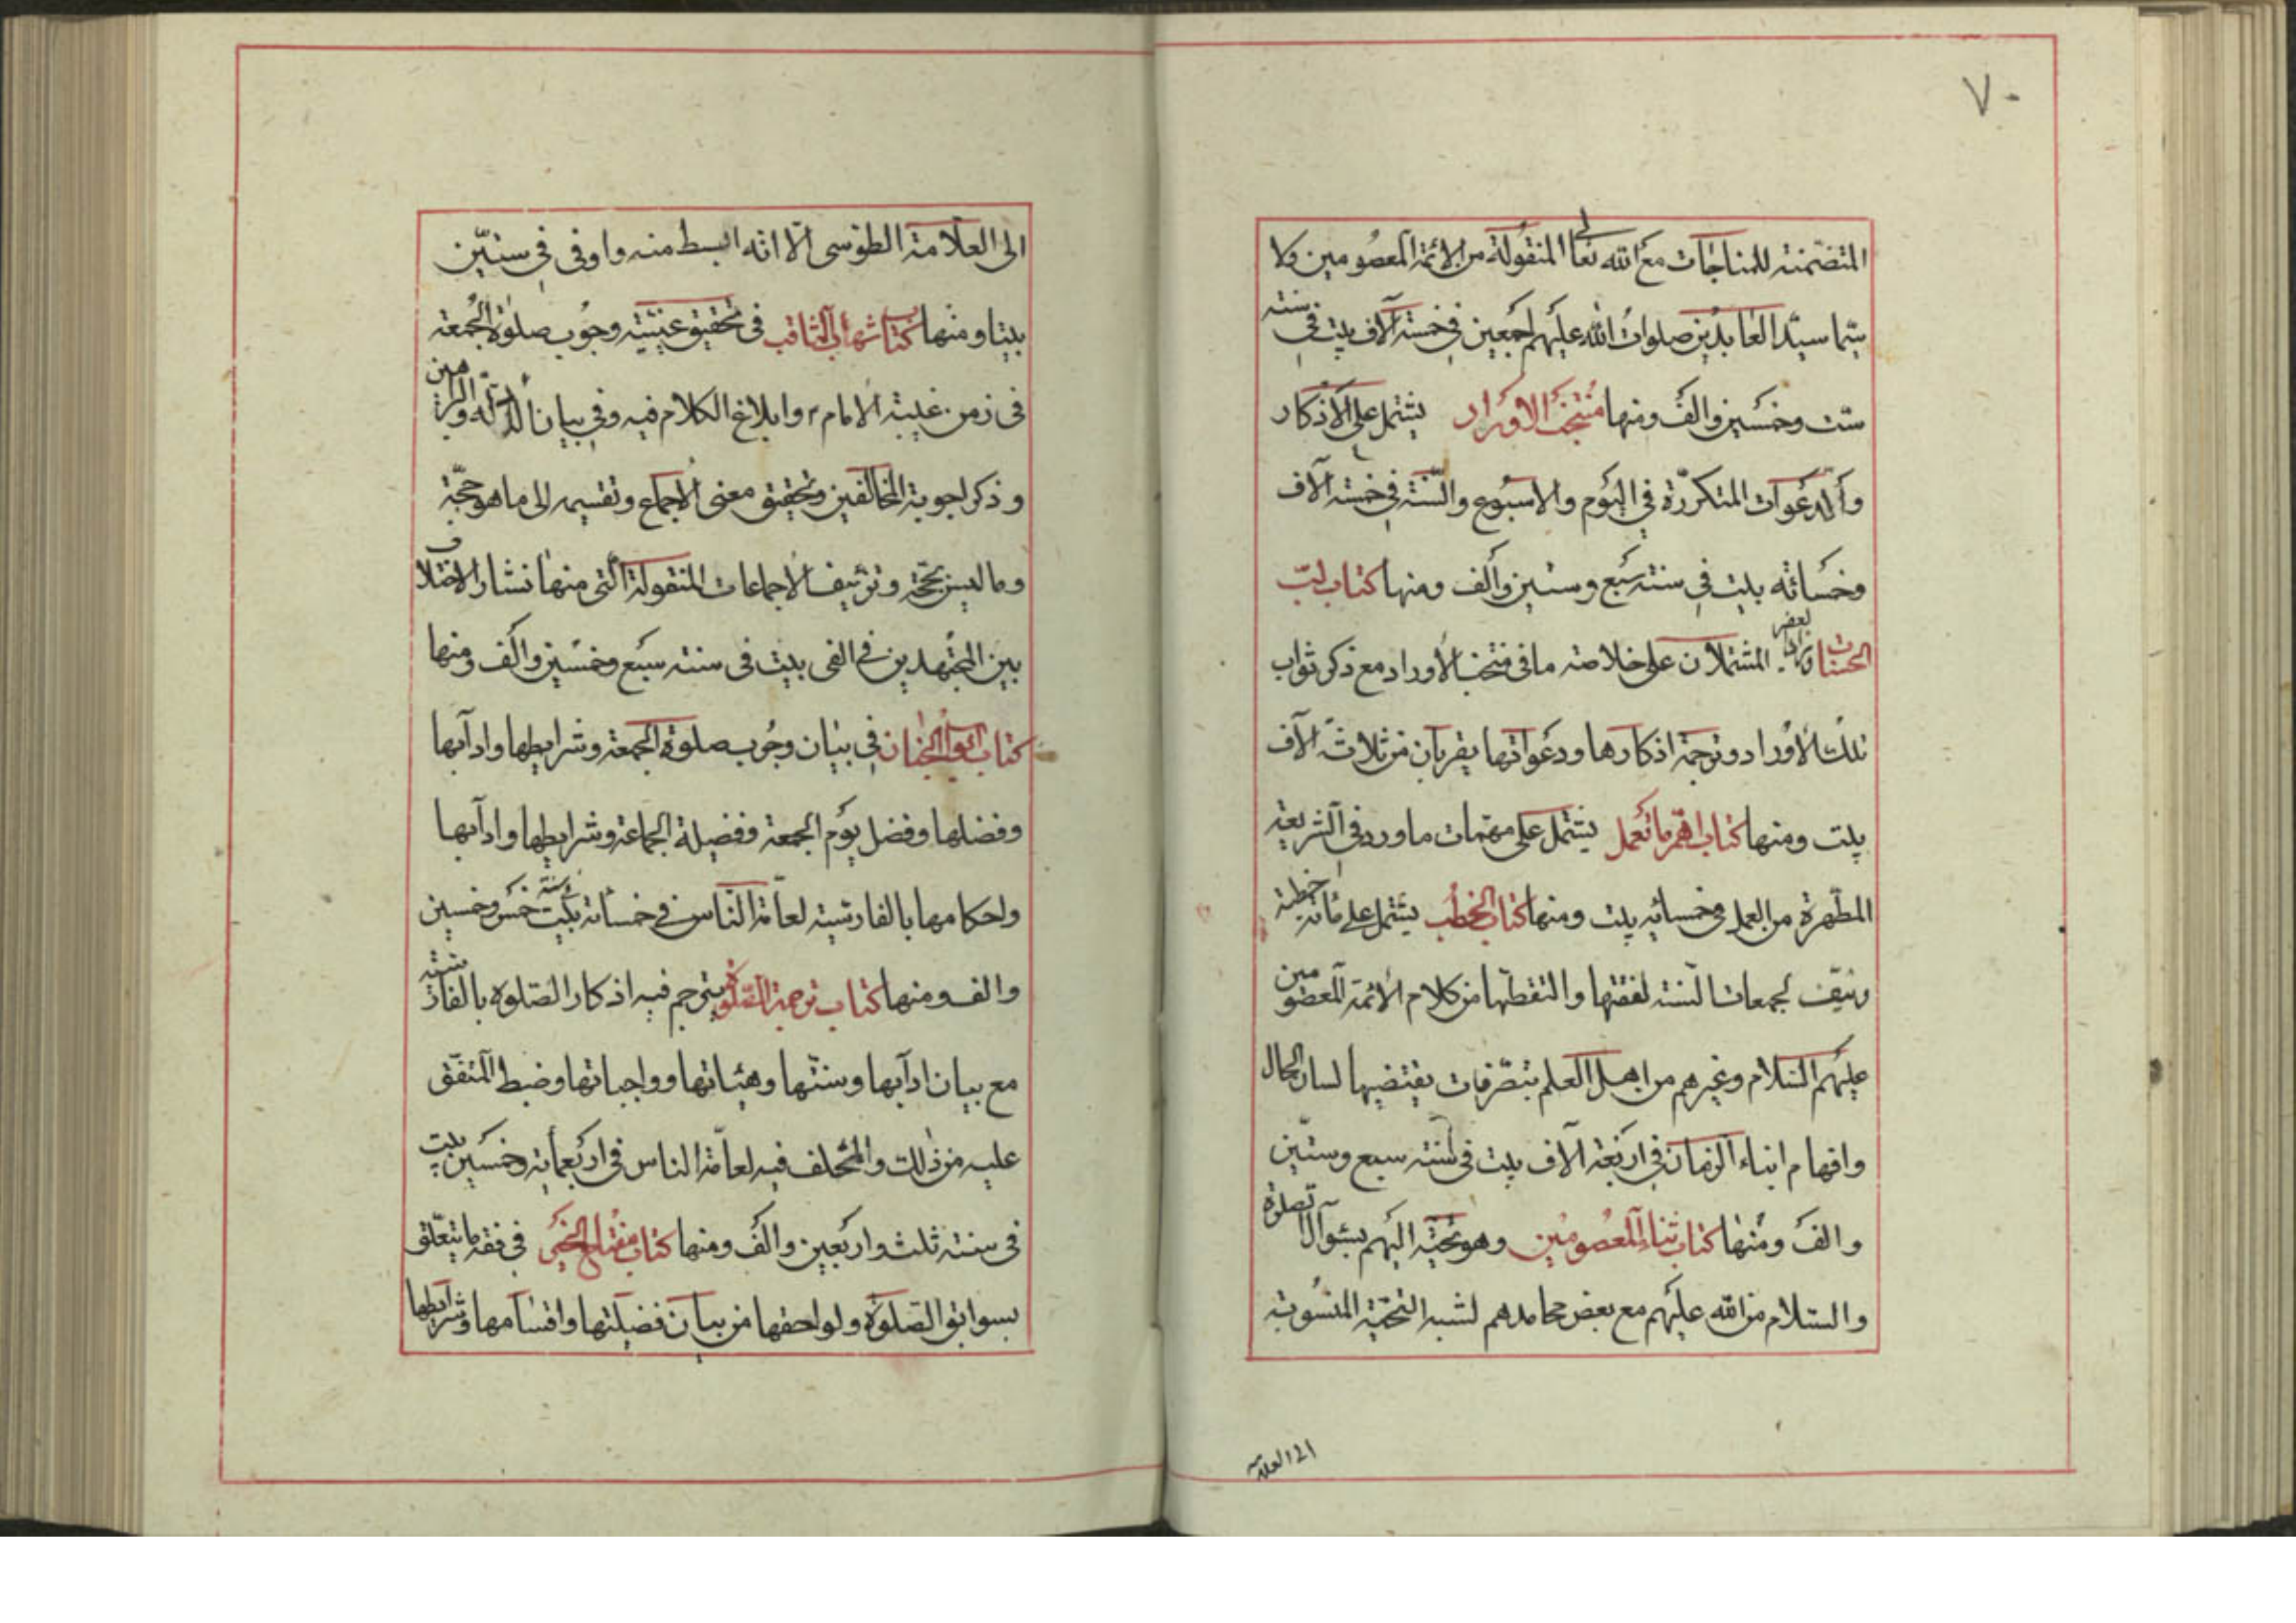 ٧٠
المتضمنة للمناجات مع الله تعالى المنقولة من الأئمة المعصومين ولا
سيما سيد العابدين صلوات الله عليهم اجمعين في خمسة آلاف بيت في سنة
ست وخمسين والف ومنها منتخب الاوراد يشتمل على الاذكار
والدعوات المتكررة في اليوم والاسبوع والسنة في خمسة آلاف
وخمسمائه بيت في سنة سبع وستين والف ومنها كتاب لب
الحسنات المشتملان على خلاصة ما في منتخب الأوراد مع ذكر ثواب
تلك الاوراد وترجمة اذكارها ودعواتها يقربان من ثلاثة آلاف
بيت ومنها كتاب اهم ما يعمل يشتمل على مهمات ما ورد في الشريعة
المطهرة من العمل في خمسمائه بيت ومنها كتاب الخطب يشتمل على مائة خطبة
ونيف لجمعات السنة لفقتها والتقطتها من كلام الأئمة المعصومين
عليهم السلام وغيرهم من اهل العلم بتصرفات يقتضيها لسان الحال
وافهام ابناء الزمان في اربعة آلاف بيت في سنة سبع وستين
والف ومنها كتاب ثناء المعصومين وهو تحية اليهم بسؤال الصلوة
والسلام من الله عليهم مع بعض محامدهم لشبه التحية المنسوبة
الى العلامة
الى العلامة الطوسى الا انه ابسط منه واوفى في ستين
بيتا ومنها كتاب شهاب الثاقب في تحقيق عينية وجوب صلوة الجمعة
في زمن غيبة الامام م وابلاغ الكلام فيه وفي بيان الادلة والبراهين
وذكر اجوبة المخالفين وتحقيق معنى الاجماع وتقسيمه الى ما هو حجة
وما ليس بحجة وتزييف الاجماعات المنقولة التى منها نشأ الاختلاف
بين المجتهدين في الفى بيت في سنة سبع وخمسين والف ومنها
كتاب ابواب الجنان في بيان وجوب صلوة الجمعة وشرايطها وادآبها
وفضلها وفضل يوم الجمعة وفضيلة الجماعة وشرايطها وادآبها
واحكامها بالفارسية لعامة الناس في خمسمائة بيت سنة خمس وخمسين
والف ومنها كتاب ترجمة الصلوة يترجم فيه اذكار الصلوة بالفارسية
مع بيان ادآبها وسننها وهيئاتها وواجباتها وضبط المتفق
عليه من ذلك والمختلف فيه لعامة الناس في اربعمأية وخمسين بيت
في سنة ثلث واربعين والف ومنها كتاب مفتاح الخير في فقه ما يتعلق
بسوابق الصلوة ولواحقها من بيان فضيلتها واقسامها وشرايطها